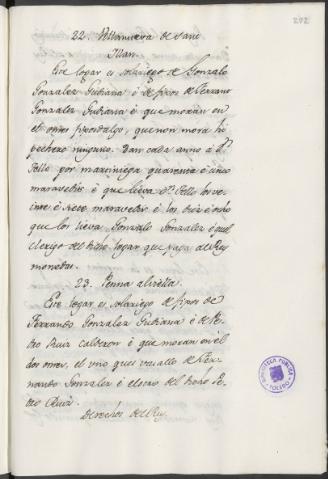 272
22. Villanueva de Sant
Illan.
Este logar es solariego de Gonzalo
Gonzalez Gudiana é de fixos de Ferrano
Gonzalez Gudiana é que moran en
el omes fixosdalgo, que non mora hi
pechero ninguno. Dan cada anno á Dn.
Tello por marciniega quarenta é cinco
maravedis é que lieva Dn. Tello los ve-
inte é siete maravedis é los diez é ocho
que los lieva Gonzalo Gonzalez é quel
clerigo del dicho logar que paga al Rey
monedas.
23. Penna aliella.
Este logar es solariego de fixos de
Ferrando Gonzalez Gudiana é de Pe-
dro Ruiz calderon é que moran en el
dos omes, el uno ques vasallo de Fer-
nando Gonzalez é el otro del dicho Pe-
dro Ruiz.
Derechos del Rey.
BIBLIOTECA PUBLICA
TOLEDO